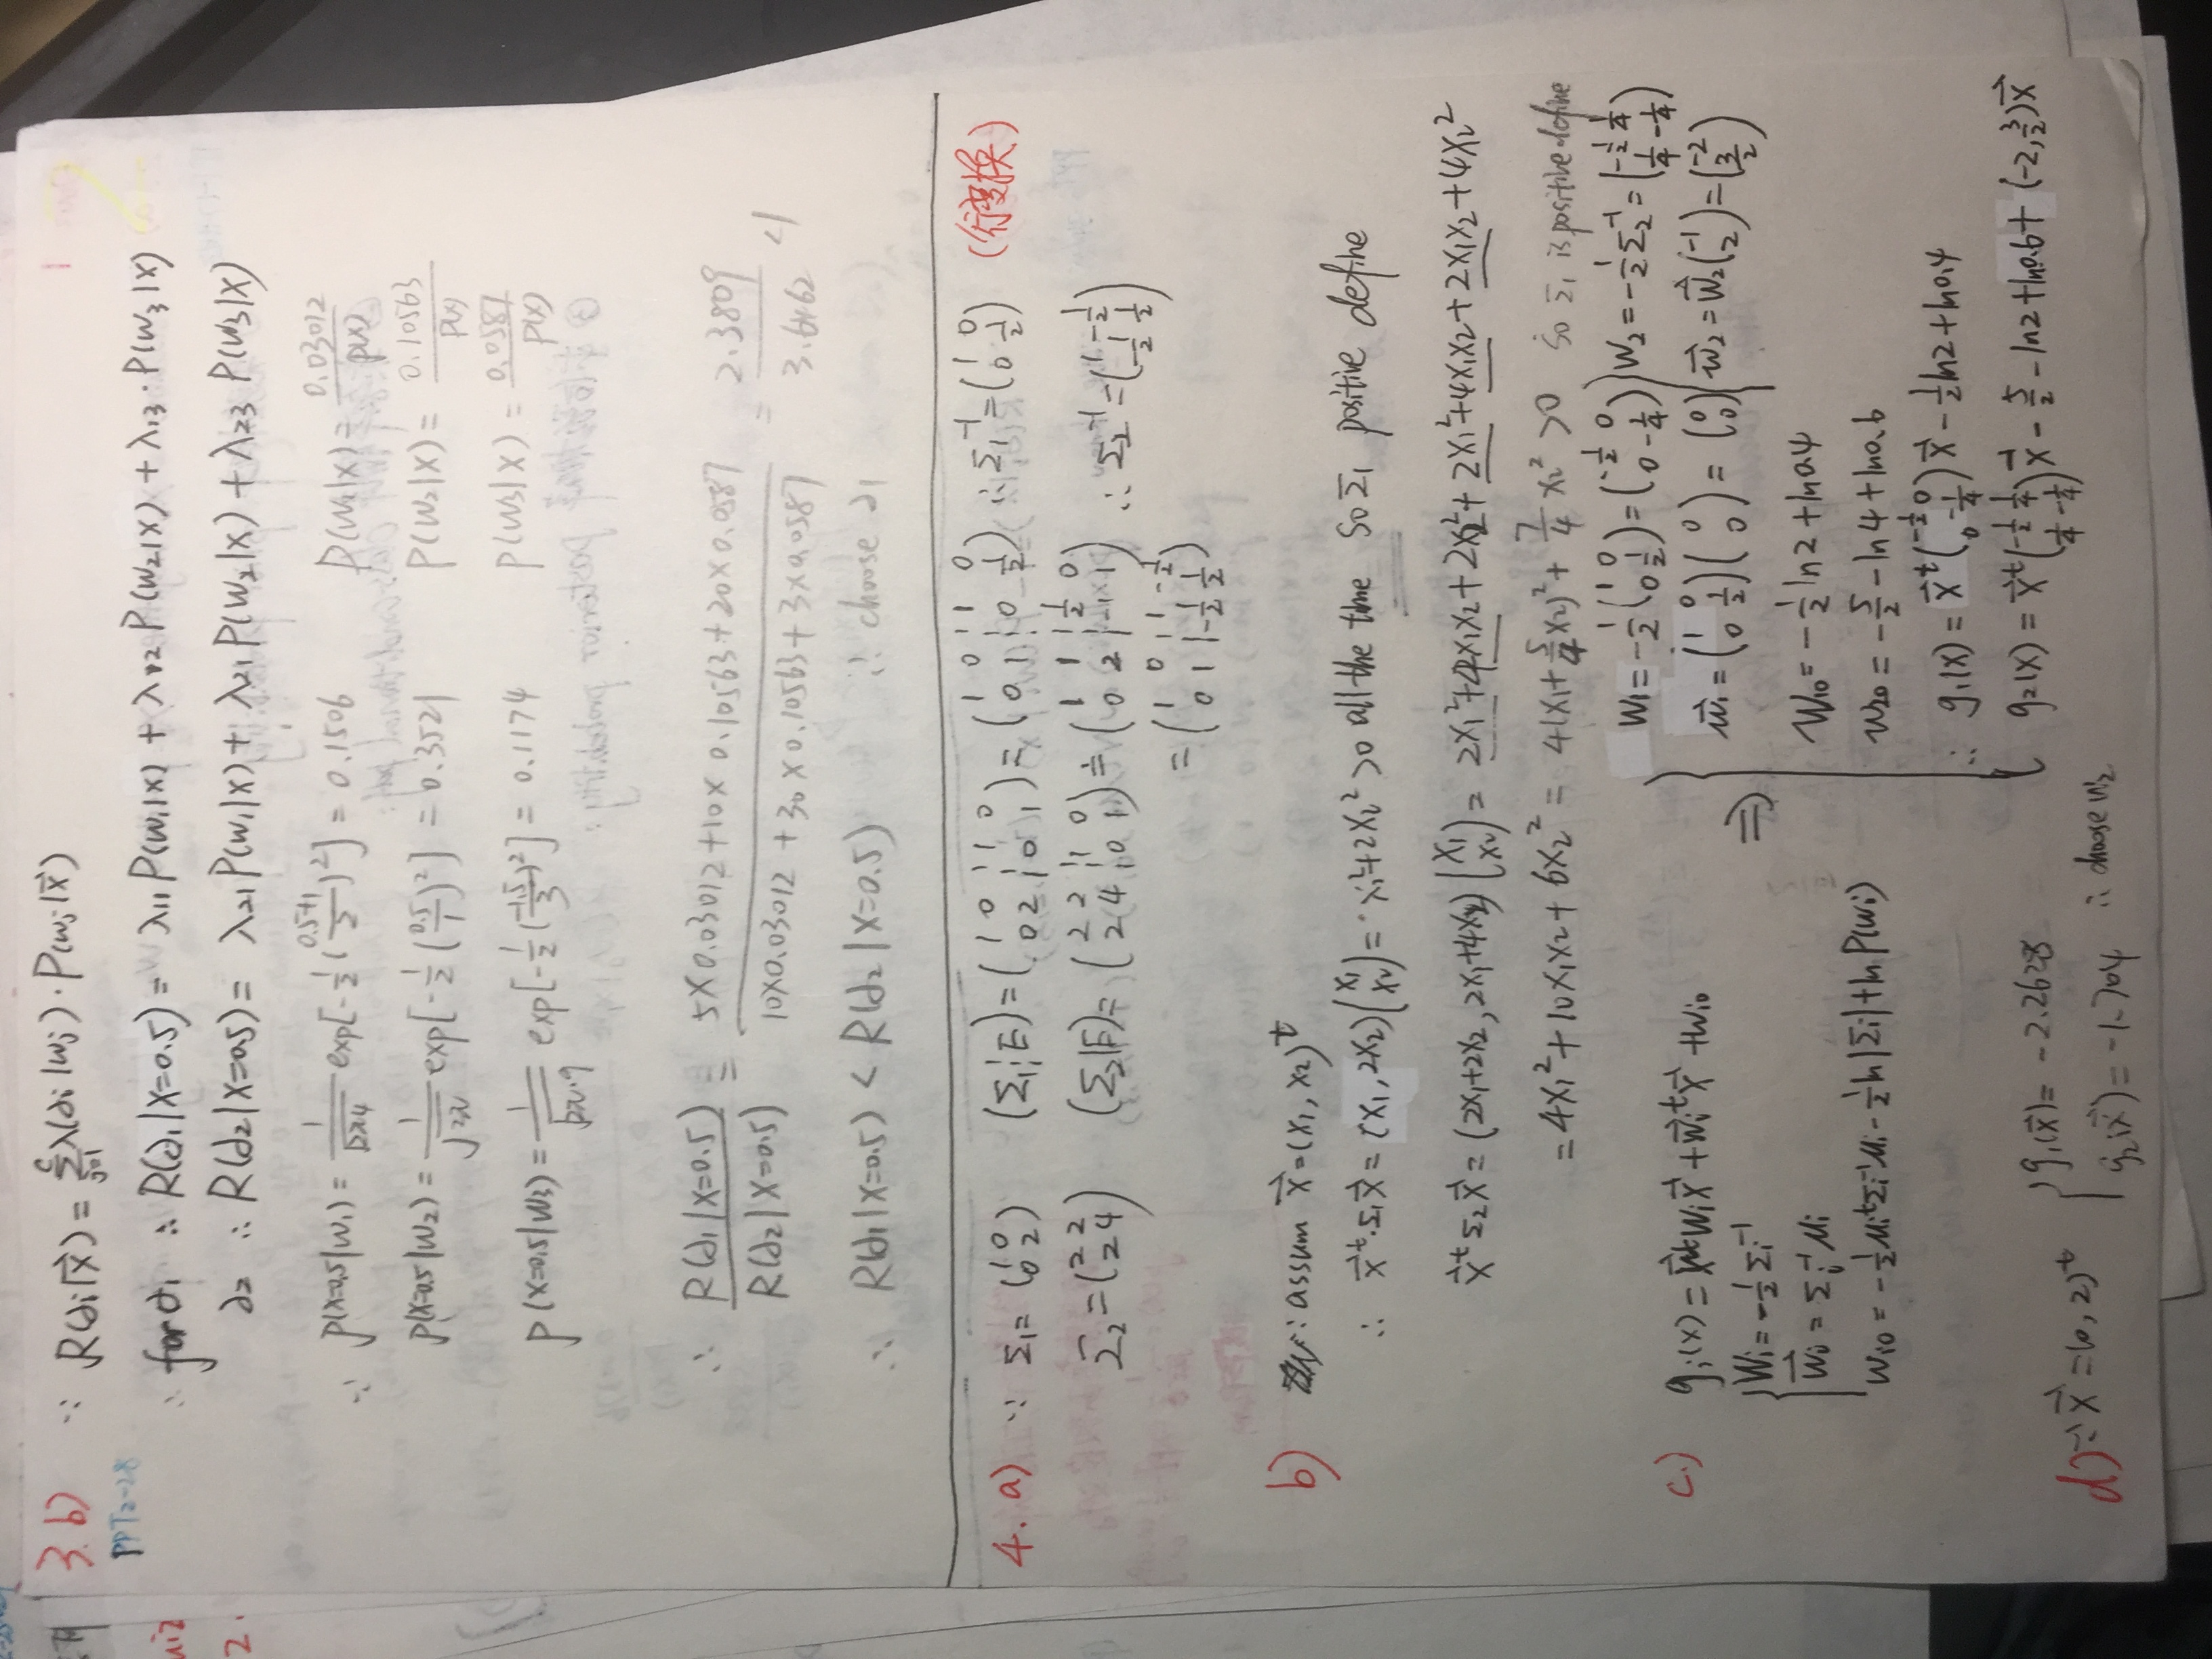 3.b) ∵ R(∂i|x⃗) = Σ_{j=1}^{c} λ(∂i|wj)·P(wj|x⃗)
PPT2-28
∴ for ∂1 ∴ R(∂1|x=0.5) = λ11 P(w1|x) + λ12 P(w2|x) + λ13·P(w3|x)
∂2 ∴ R(∂2|x=0.5) = λ21 P(w1|x) + λ21 P(w2|x) + λ23 P(w3|x)
∵ p(x=0.5|w1) = 1/√(2π4) exp[-1/2((0.5+1)/2)^2] = 0.1506 P(w1|x) = 0.03012/p(x)
p(x=0.5|w2) = 1/√(2π) exp[-1/2(0.5/1)^2] = 0.3521 P(w2|x) = 0.10563/p(x)
p(x=0.5|w3) = 1/√(2π·9) exp[-1/2(-1.5/3)^2] = 0.1174 P(w3|x) = 0.0587/p(x)
∴ R(∂1|x=0.5)/R(∂2|x=0.5) = (5×0.03012+10×0.10563+20×0.0587)/(10×0.03012+30×0.10563+3×0.0587) = 2.3809/3.6462 <1
∴ R(∂1|x=0.5) < R(∂2|x=0.5) ∴ choose ∂1
4.a) ∵ Σ1 = (1 0; 0 2) (Σ1|E) = (1 0 | 1 0; 0 2 | 0 1) = (1 0 | 1 0; 0 1 | 0 1/2) ∴ Σ1^-1 = (1 0; 0 1/2) (行变换)
Σ2 = (2 2; 2 4) (Σ2|E) = (2 2 | 1 0; 2 4 | 0 1) = (1 1 | 1/2 0; 0 2 | -1 1) ∴ Σ2^-1 = (1 -1/2; -1/2 1/2)
= (1 0 | 1 -1/2; 0 1 | -1/2 1/2)
b) ∵ assum x⃗ = (x1, x2)^t
∴ x⃗^t·Σ1x⃗ = (x1, 2x2)(x1; x2) = x1^2+2x2^2 >0 all the time So Σ1 positive define
x⃗^tΣ2x⃗ = (2x1+2x2, 2x1+4x2)(x1; x2) = 2x1^2+4x1x2+2x2^2+2x1^2+4x1x2+2x1x2+4x2^2
= 4x1^2+10x1x2+6x2^2 = 4(x1+5/4x2)^2+7/4x2^2 >0 So Σ1 is positive define
c.) gi(x) = x⃗^tWix⃗+w⃗i^tx⃗+wi0
Wi = -1/2Σi^-1
w⃗i = Σi^-1μi
wi0 = -1/2μi^tΣi^-1μi-1/2ln|Σi|+ln P(wi)
⇒ W1 = -1/2(1 0; 0 1/2) = (-1/2 0; 0 -1/4) W2 = -1/2Σ2^-1 = (-1/2 1/4; 1/4 -1/4)
w⃗1 = (1 0; 0 1/2)(0; 0) = (0; 0) w⃗2 = W⃗2(-1; 2) = (-2; 3/2)
w10 = -1/2ln2+ln0.4
w20 = -5/2-ln4+ln0.6
∴ g1(x) = x⃗^t(-1/2 0; 0 -1/4)x⃗-1/2ln2+ln0.4
g2(x) = x⃗^t(-1/2 1/4; 1/4 -1/4)x⃗-5/2-ln2+ln0.6+(-2,3/2)x⃗
d) ∵ x⃗ = (0,2)^t g1(x⃗) = -2.2628
g2(x⃗) = -1.704 ∴ choose w2